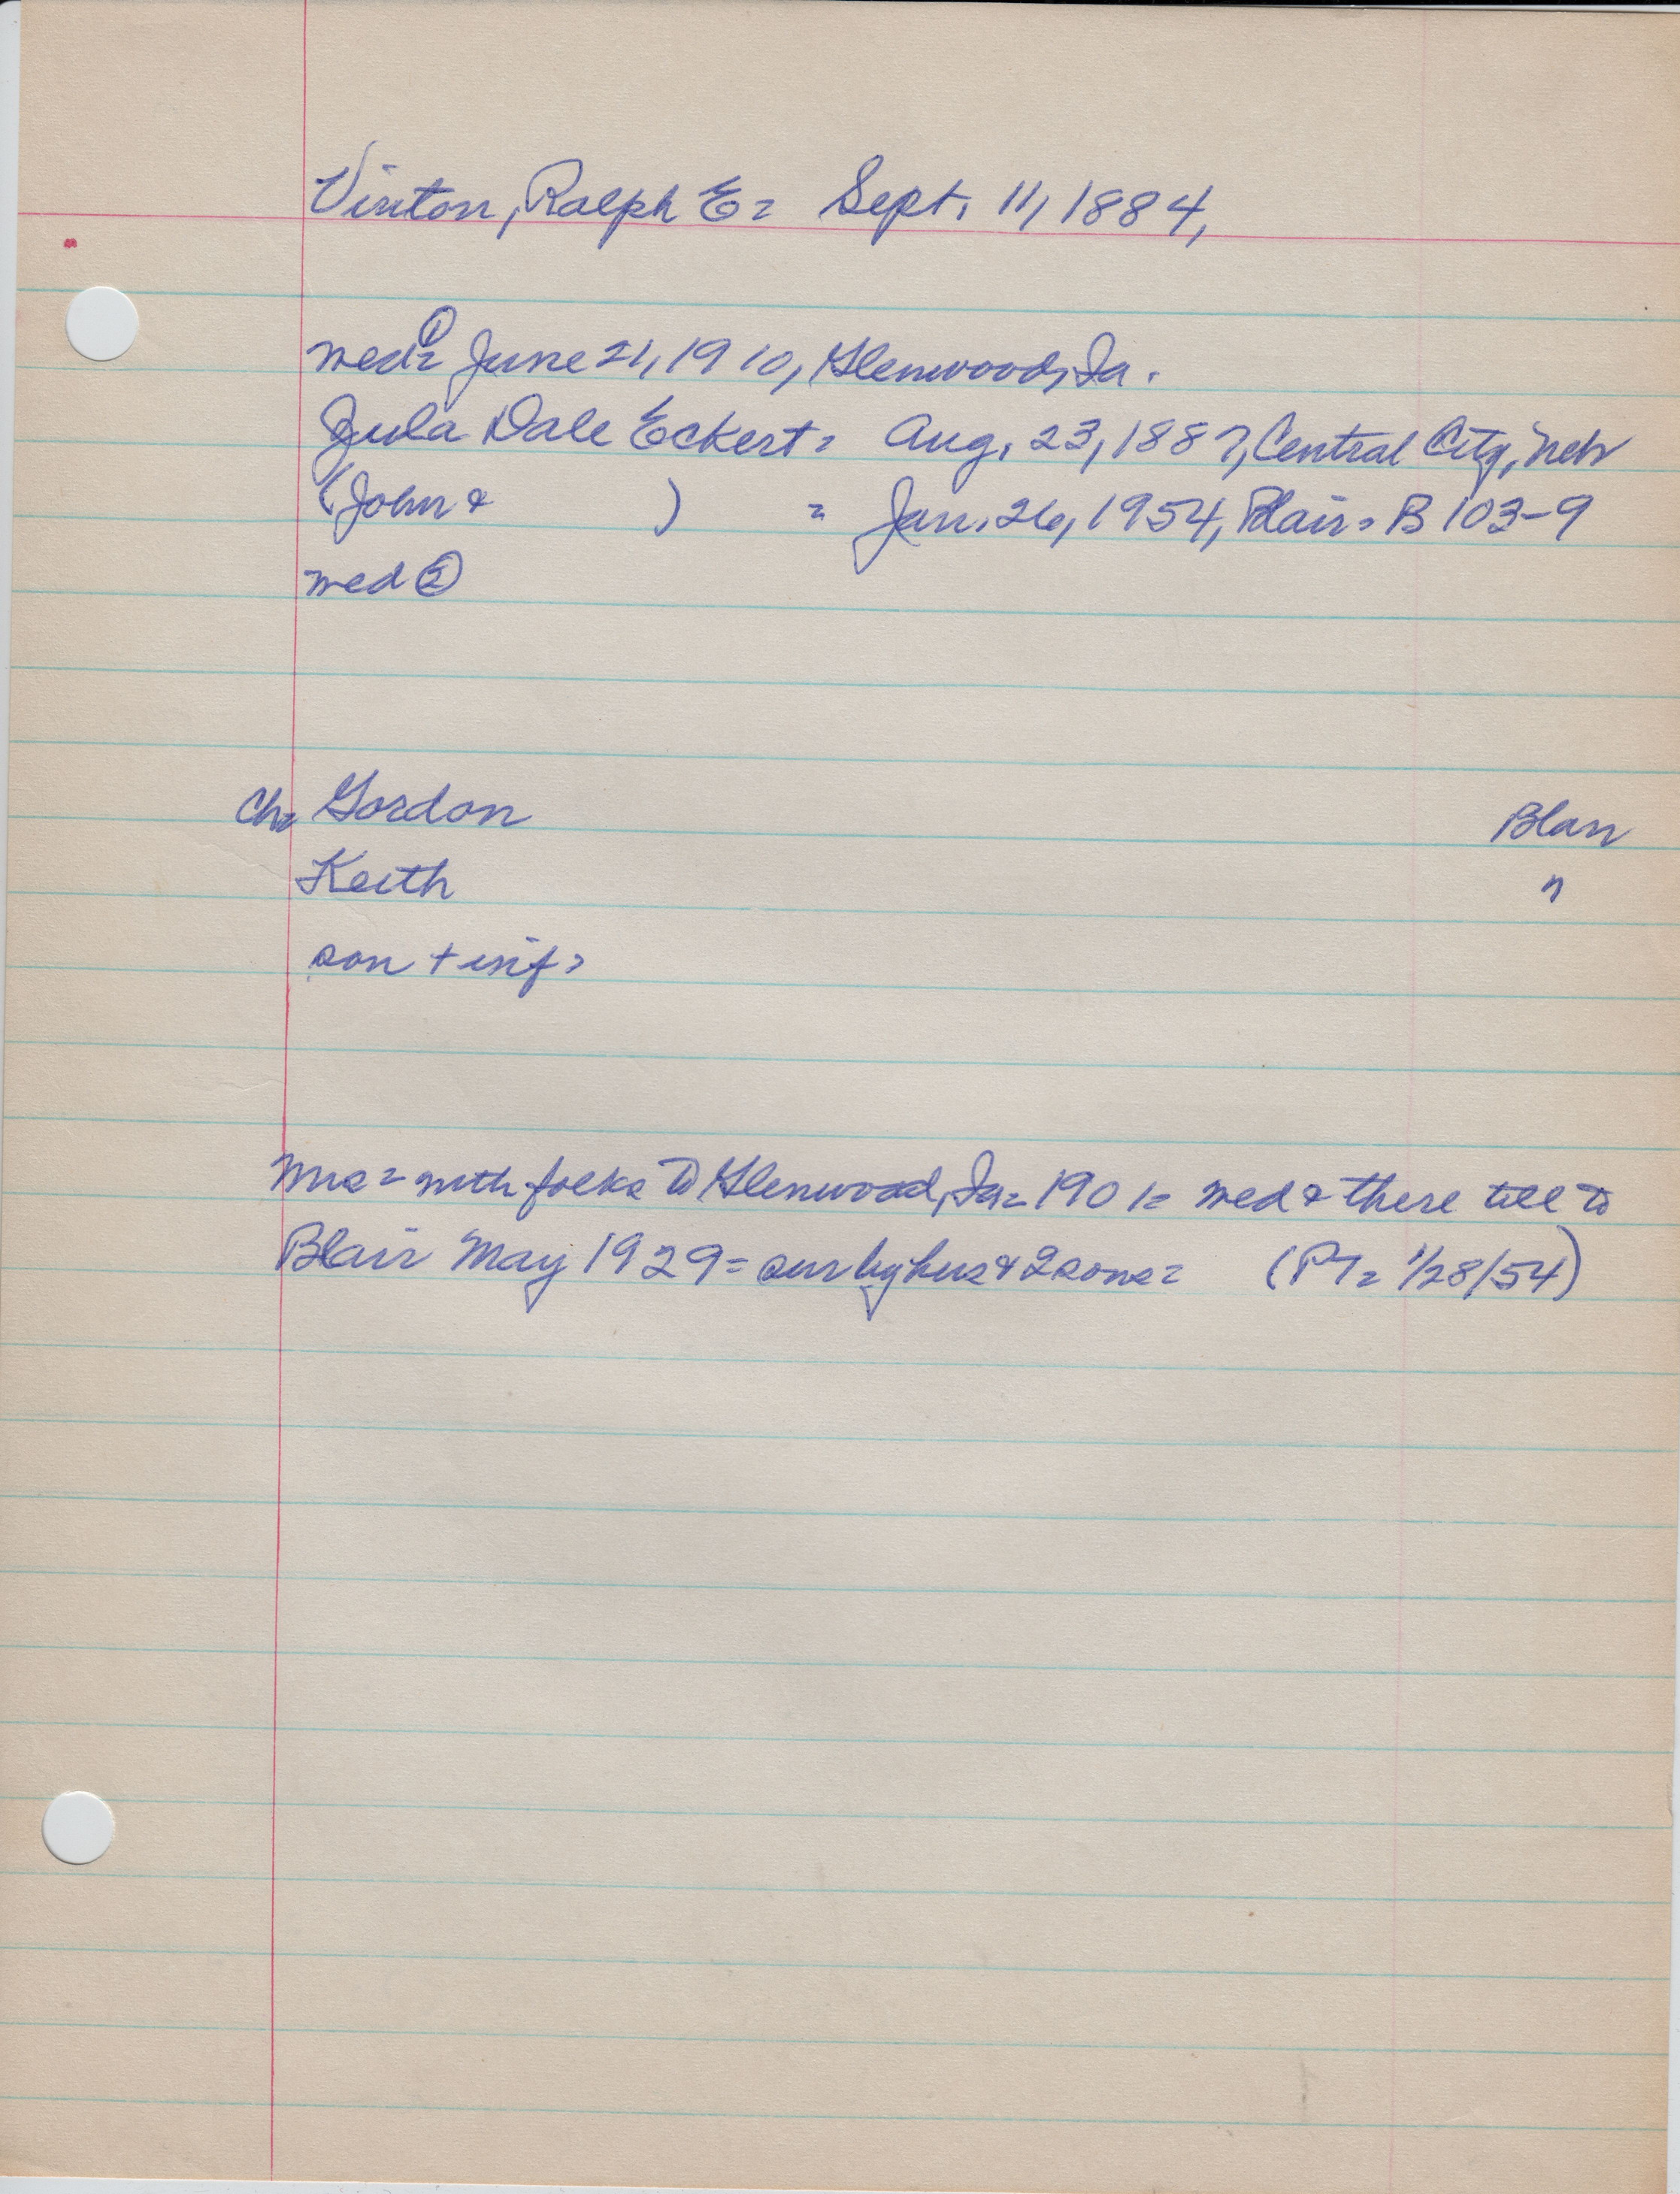 Vinton, Ralph E = Sept. 11, 1884,
med ① = June 21, 1910, Glenwood, Ia.
Zula Dale Eckert = Aug. 23, 1887, Central City, Neb
(John & ) = Jan. 26, 1954, Blair = B 103-9
med ②
Ch = Gordon Blair
Keith "
son + inf =
Mrs = with folks to Glenwood, Ia = 1901 = med & there till to
Blair May 1929 = sur by hus & 2 sons = (PT = 1/28/54)